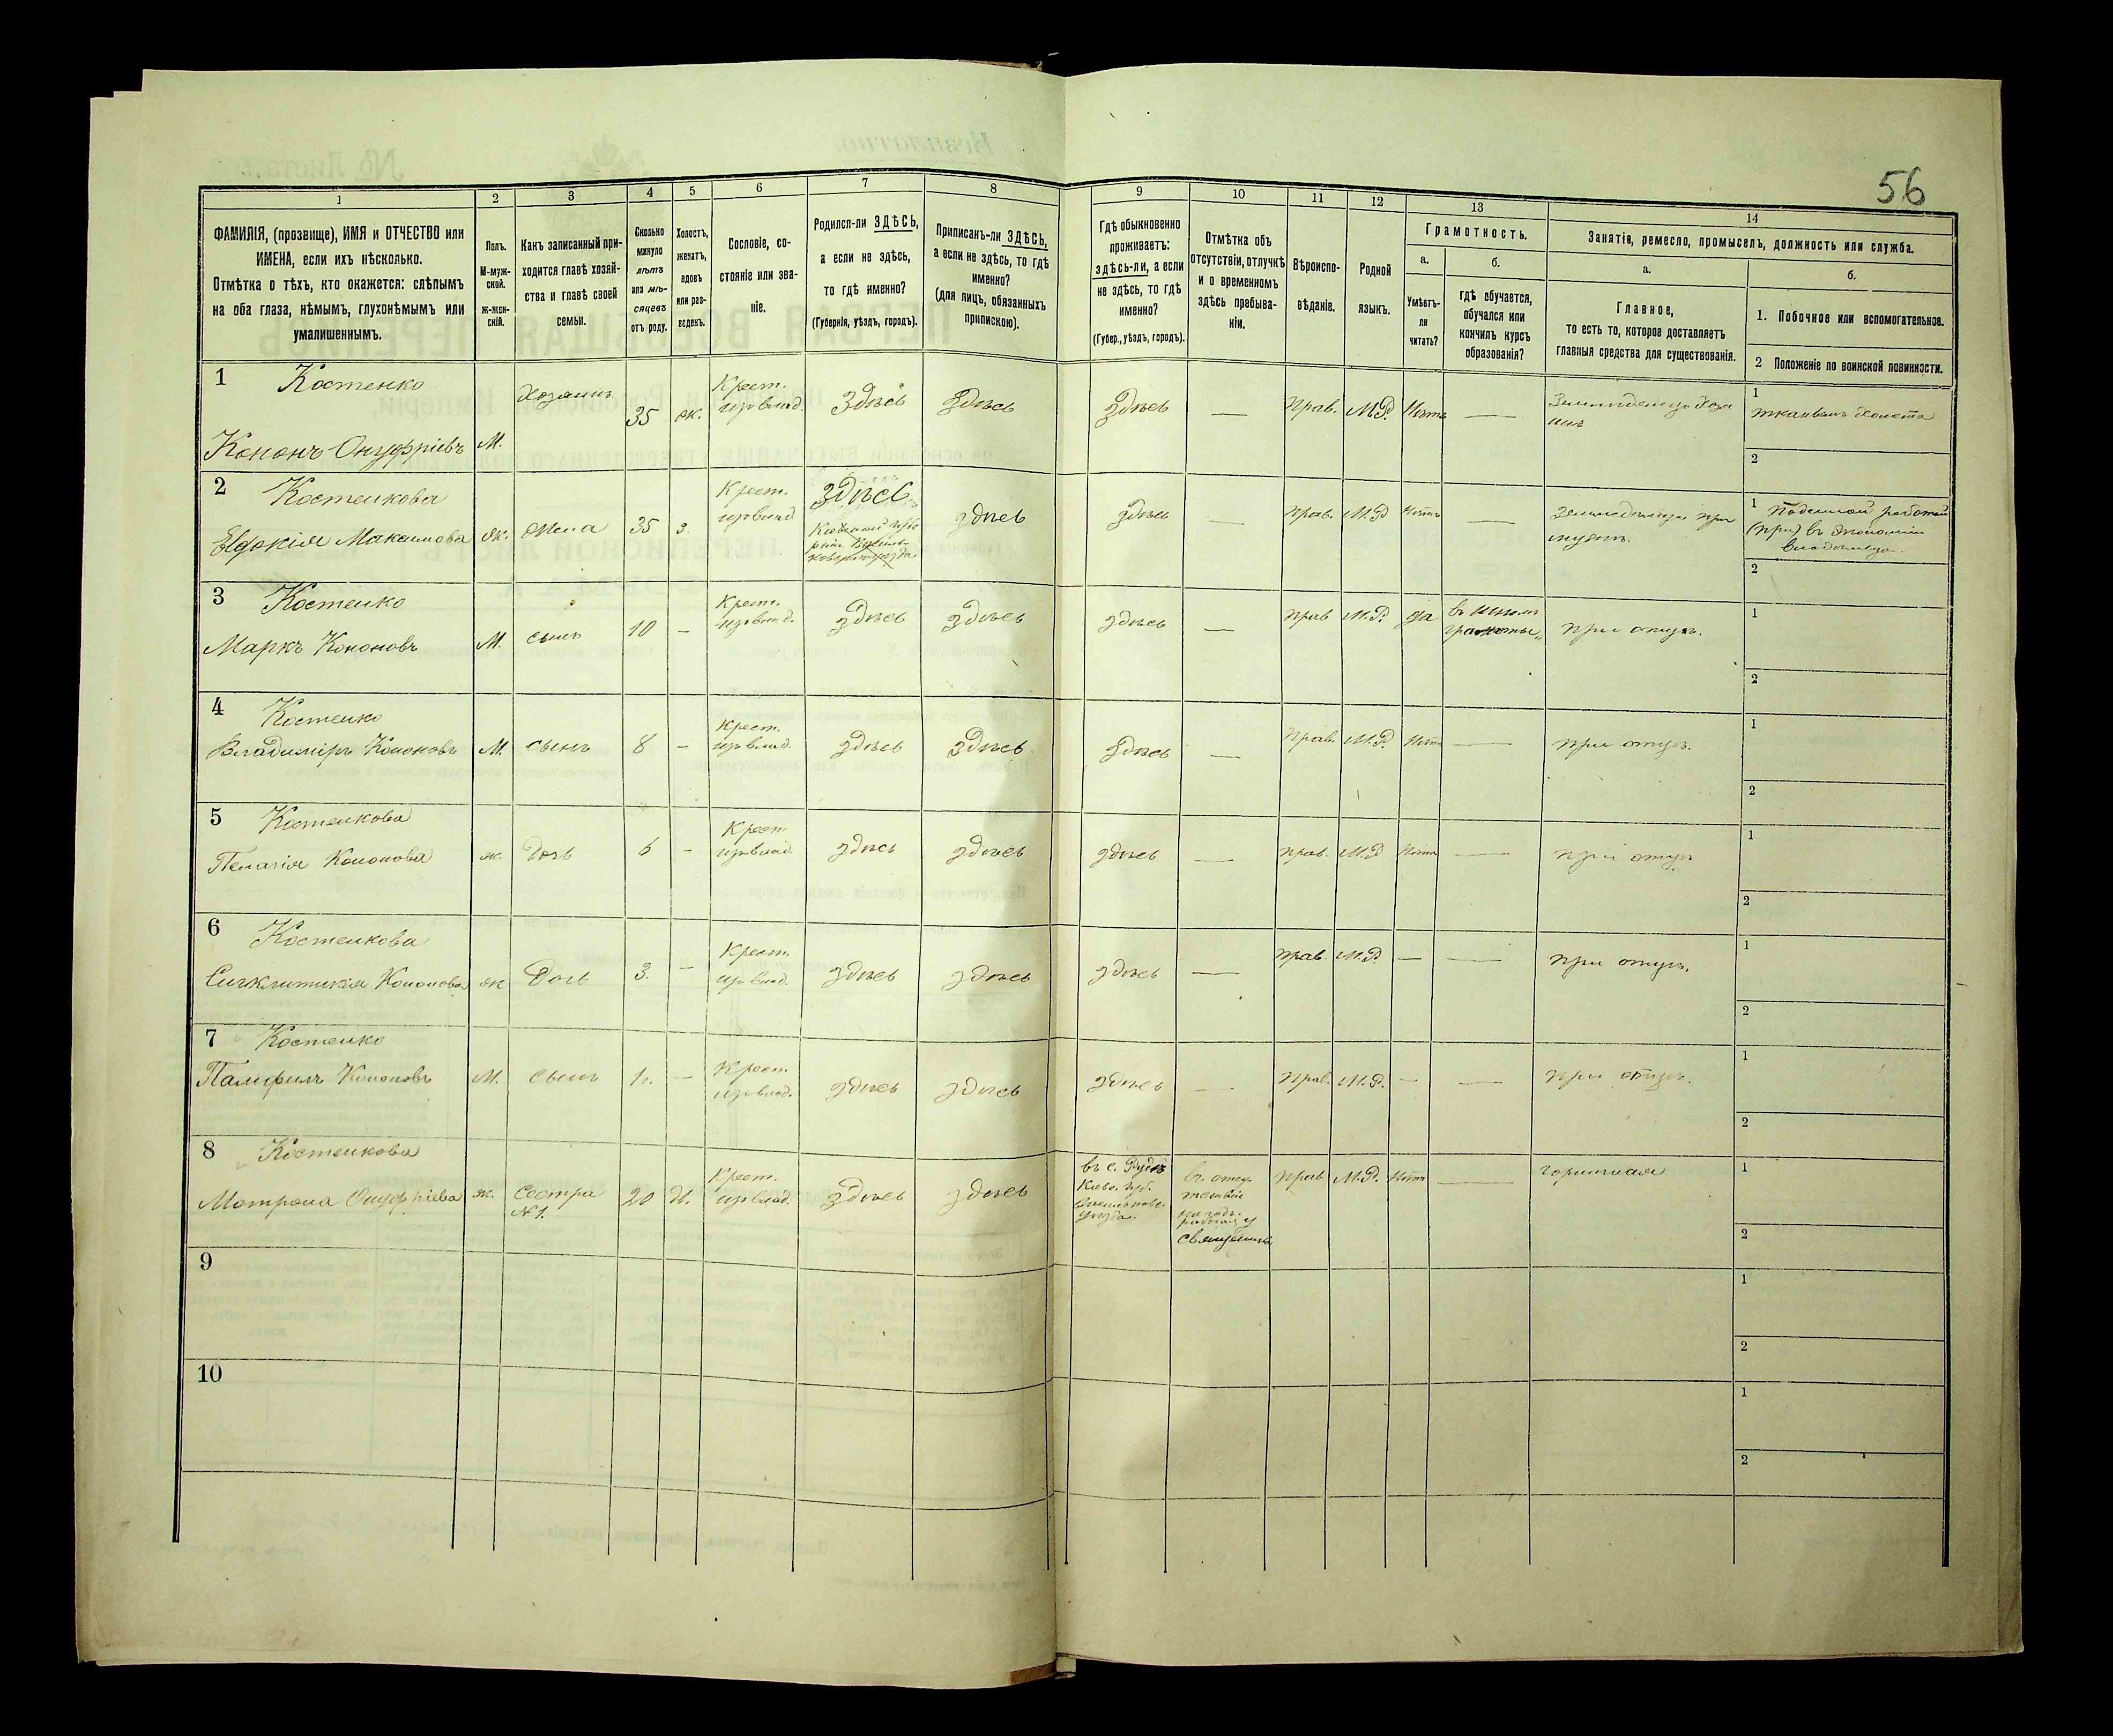 56
1
2
3
4
5
6
7
8
9
10
11
12
13
14
ФАМИЛІЯ, (прозвище), ИМЯ и ОТЧЕСТВО или
ИМЕНА, если ихъ нѣсколько.
Отмѣтка о тѣхъ, кто окажется: слѣпымъ
на оба глаза, нѣмымъ, глухонѣмымъ или
умалишеннымъ.
Полъ.
М-муж-
ской.
ж-жен-
скій.
Какъ записанный при-
ходится главѣ хозяй-
ства и главѣ своей
семьи.
Сколько
минуло
лѣтъ
или мѣ-
сяцевъ
отъ роду.
Холостъ,
женатъ,
вдовъ
или раз-
веденъ.
Сословіе, со-
стояніе или зва-
ніе.
Родился-ли ЗДѢСЬ,
а если не здѣсь,
то гдѣ именно?
(Губернія, уѣздъ, городъ).
Приписанъ-ли ЗДѢСЬ,
а если не здѣсь, то гдѣ
именно?
(для лицъ, обязанныхъ
припискою).
Гдѣ обыкновенно
проживаетъ:
здѣсь-ли, а если
не здѣсь, то гдѣ
именно?
(Губер., уѣздъ, городъ).
Отмѣтка объ
отсутствіи, отлучкѣ
и о временномъ
здѣсь пребыва-
ніи.
Вѣроиспо-
вѣданіе.
Родной
языкъ.
Грамотность.
а.
Умѣетъ-
ли
читать?
б.
гдѣ обучается,
обучался или
кончилъ курсъ
образованія?
Занятіе, ремесло, промыселъ, должность или служба.
а.
Главное,
то есть то, которое доставляетъ
главныя средства для существованія.
б.
1. Побочное или вспомогательное.
2 Положеніе по воинской повинности.
1 Костенко
Кононъ Онуфріевъ
М.
Хозяинъ
35
ж.
Крест.
изъ влад.
Здѣсь
Здѣсь
Здѣсь
—
Прав.
М.Р.
Нѣтъ
—
Земледѣлецъ Хозя
инъ
1
ткачемъ холста
2
2 Костенкова
Евдокія Максимова
ж.
жена
35
з.
Крест.
изъ влад
здѣсь
Кіевской губе
рніи Василь
ковскаго уѣзда
здѣсь
здѣсь
—
прав.
М.Р
Нѣтъ
—
Земледѣлица при
мужѣ.
1 Поденной работой
(при) въ экономіи
владѣльца.
2
3 Костенко
Маркъ Кононовъ
М.
сынъ
10
—
Крест.
изъ влад.
здѣсь
здѣсь
здѣсь
—
прав
М.Р.
да
въ школѣ
грамоты
при отцѣ.
1
2
4 Костенко
Владиміръ Кононовъ
М.
сынъ
8
—
крест.
изъ влад.
здѣсь
здѣсь
здѣсь
—
Прав.
М.Р.
Нѣтъ
—
при отцѣ.
1
2
5 Костенкова
Пелагія Кононова
ж.
Дочь
6
—
Крест
изъ влад.
здѣсь
здѣсь
здѣсь
—
прав.
М.Р
Нѣтъ
—
при отцѣ
1
2
6 Костенкова
Сигклитикія Кононова
ж
Дочь
3.
—
Крест.
изъ влад.
здѣсь
здѣсь
здѣсь
—
прав.
М.Р.
—
—
при отцѣ.
1
2
7 Костенко
Памфилъ Кононовъ
М.
сынъ
1 г.
—
Крест
изъ влад.
здѣсь
здѣсь
здѣсь
—
прав.
М.Р.
—
—
при отцѣ.
1
2
8 Костенкова
Мотрона Онуфріева
ж.
Сестра
№ 1.
20
дѣ.
Крест.
изъ влад.
здѣсь
здѣсь
въ с.
Кіев. губ.
Васильков.
уѣзда.
въ отсут
ствіи
священника
прав
М.Р.
Нѣтъ
—
горничная
1
2
9
1
2
10
1
2